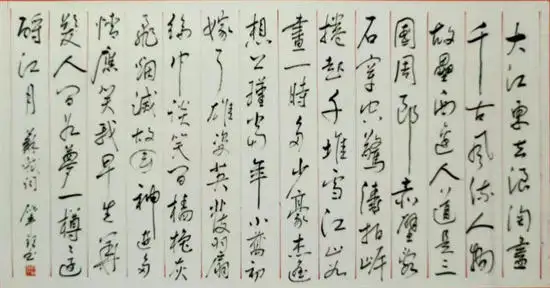 大江東去浪淘盡
千古風流人物
故壘西邊人道是三
國周郎赤壁亂
石穿空驚濤拍岸
捲起千堆雪江山如
畫一時多少豪杰遙
想公瑾當年小喬初
嫁了雄姿英發羽扇
綸巾談笑間檣櫓灰
飛煙滅故国神遊多
情應笑我早生華
髮人間如夢一樽還
酹江月 蘇軾詞 書